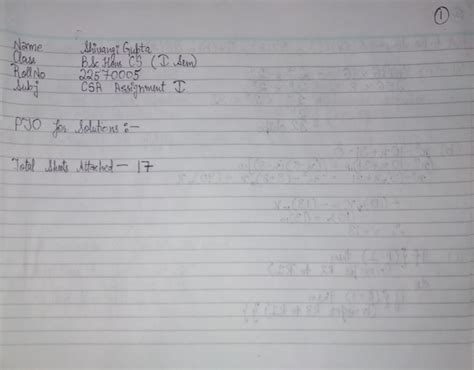 1
Name Shivangi Gupta
Class BSc Hons CS (I Sem)
Roll No 22570005
Subj CSA Assignment I
PTO for Solutions :-
Total Sheets Attached - 17